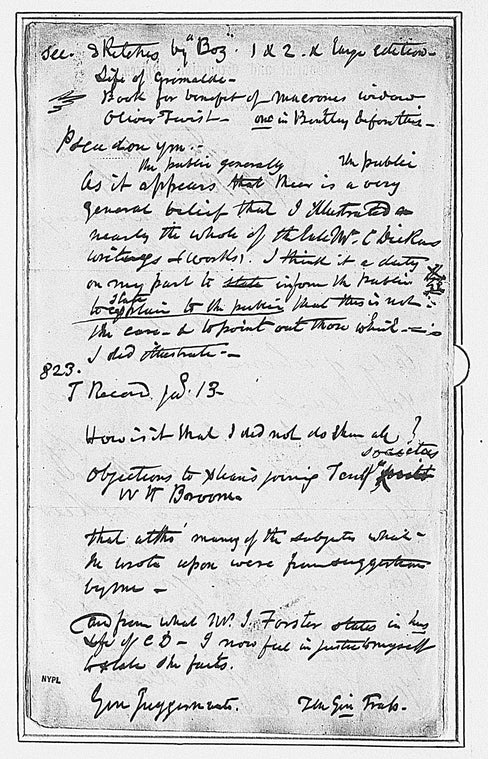 see. Sketches by "Boz" 1 & 2. & large edition-
Life of Grimaldi-
Book for benefit of Macrones widow
Oliver Twist- one in Bentley before this-
the public generally the public
As it appears that there is a very
general belief that I Illustrated
nearly the whole of the late Mr. C Dickens
writings & works. I think it a duty
on my part to state inform the public
state
to explain to the public that this is not
the case- & to point out those which
I did illustrate--
823.
T Record. 13-
How is it that I did not do them all?
societies
Objections to joining Temp
W H
that altho' many of the subjects which
he wrote upon were from suggestions
by me-
and from what Mr. J. Forster states in his
Life of C D- I now feel in justice to myself
to state the facts.
NYPL
Gin Juggernauts. The Gin Trap-